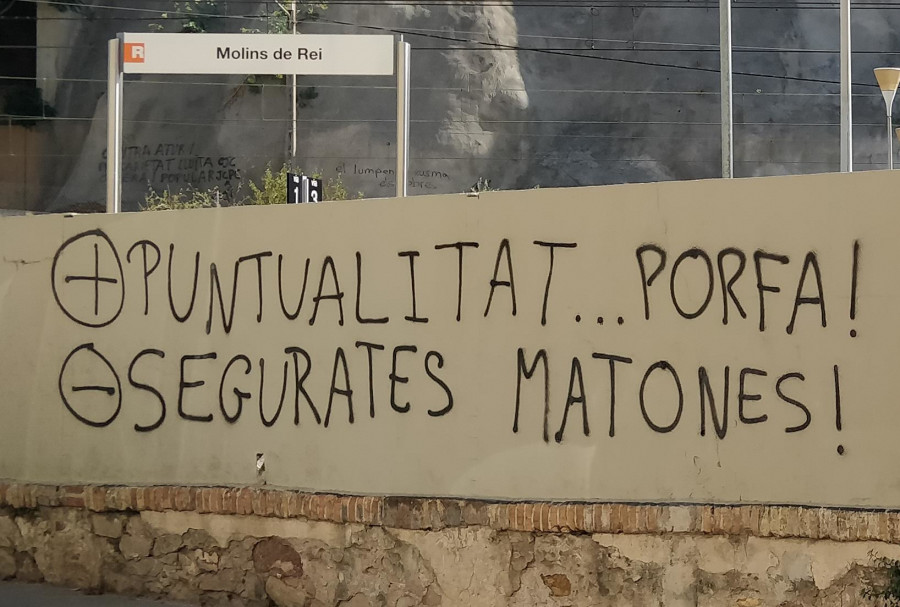 R Molins de Rei
CONTRA ATUR I
el lumpen
1 3
+ PUNTUALITAT... PORFA!
- SEGURATES MATONES!